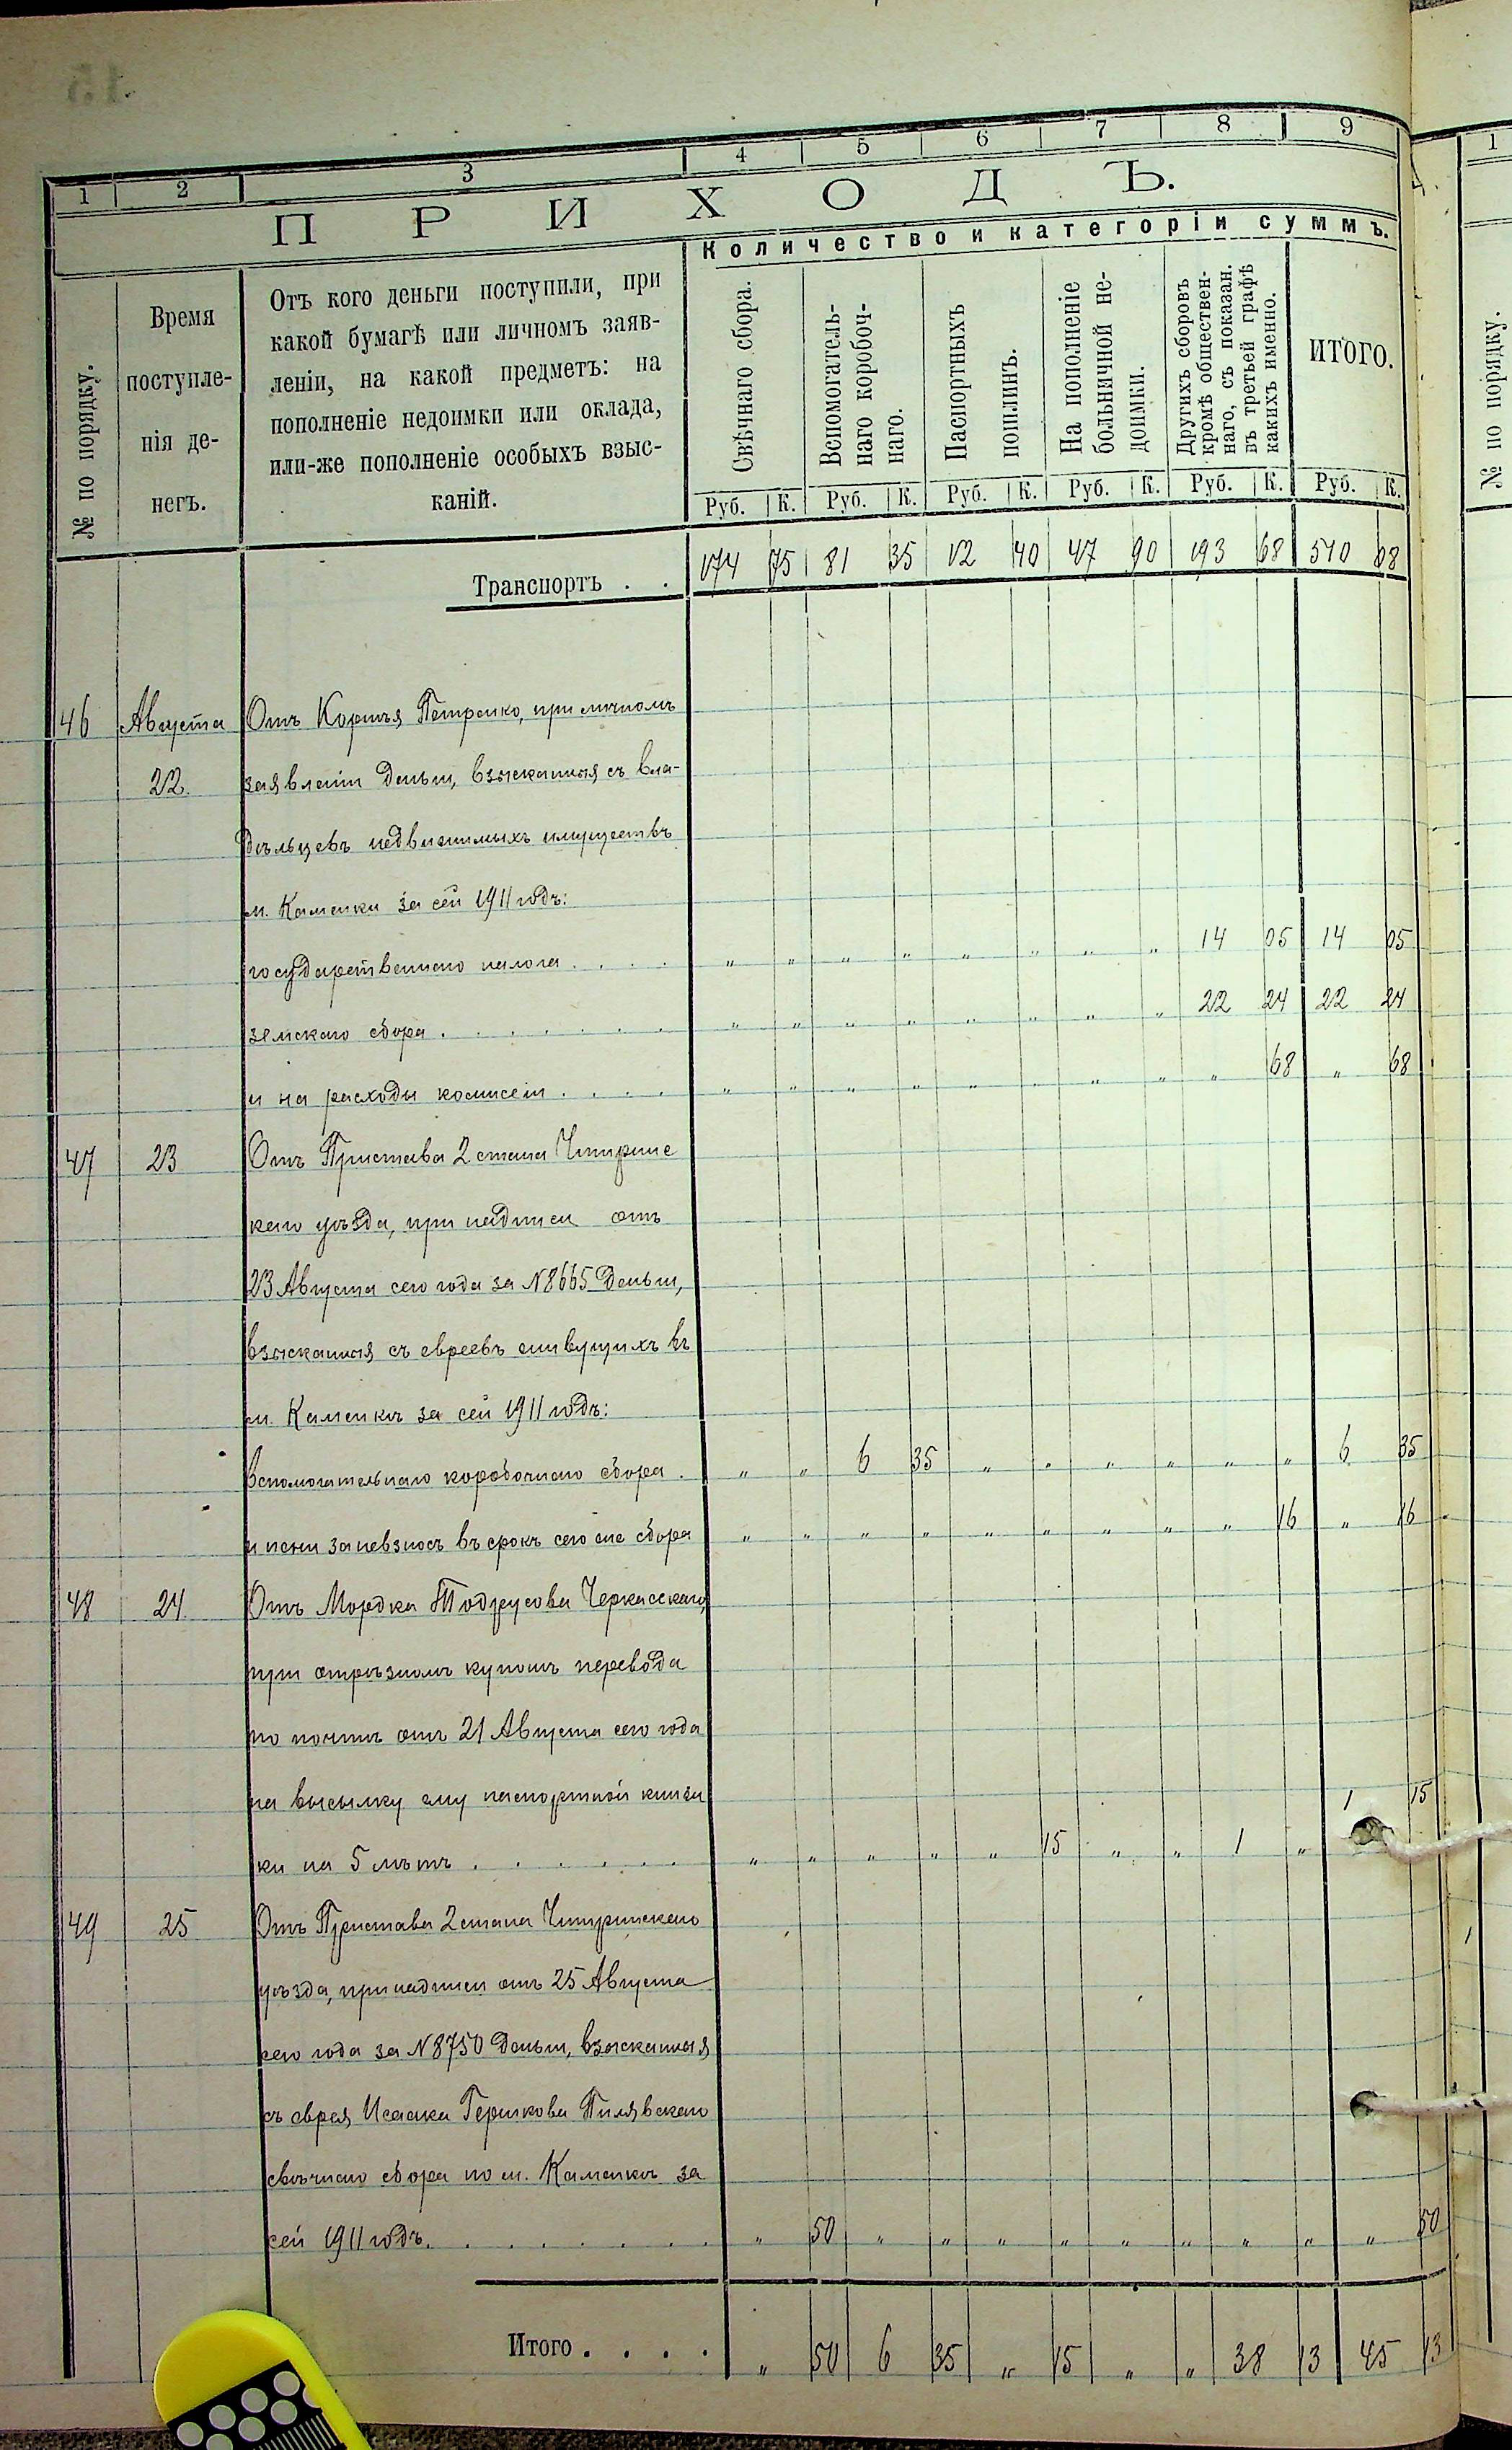 1 2 3 4 5 6 7 8 9
ПРИХОДЪ.
Количество и категоріи суммъ.
№ по порядку.
Время
поступле-
нія де-
негъ.
Отъ кого деньги поступили, при
какой бумагѣ или личномъ заяв-
леніи, на какой предметъ: на
пополненіе недоимки или оклада,
или-же пополненіе особыхъ взыс-
каній.
Свѣчнаго сбора.
Вспомогатель-
наго коробоч-
наго.
Паспортныхъ
пошлинъ.
На пополненіе
больничной не-
доимки.
Другихъ сборовъ
кромѣ обществен-
наго, съ показан.
въ третьей графѣ
какихъ именно.
ИТОГО.
Руб. К. Руб. К. Руб. К. Руб. К. Руб. К. Руб. К.
Транспортъ . . 174 75 81 35 12 40 47 90 193 68 510 08
46 Августа Отъ Корнѣя Петренко, при личномъ
22. заявленіи деньги, взысканныя съ вла-
дѣльцевъ недвижимыхъ имуществъ
м. Каменки за сей 1911 годъ:
государственнаго налога . . . . " " " " " " " " 14 05 14 05
земскаго сбора . . . . . . . " " " " " " " " 22 24 22 24
и на расходы комисіи . . . . " " " " " " " " " 68 " 68
47 23 Отъ Пристава 2 стана Чигринс
каго уѣзда, при надписи отъ
23 Августа сего года за № 8665 деньги,
взысканныя съ евреевъ живущихъ въ
м. Каменкѣ за сей 1911 годъ:
вспомогательнаго коробочнаго сбора . " " 6 35 " " " " " " 6 35
и пени за невзносъ въ срокъ сего же сбора " " " " " " " " " 16 " 16
48 24. Отъ Мордка Тодрусова Черкасскаго,
при отрѣзномъ купонѣ перевода
по почтѣ отъ 21 Августа сего года
на высылку ему паспортной книж
ки на 5 лѣтъ . . . . . . " " " " " 15 " " 1 " 1 15
49 25 Отъ Пристава 2 стана Чигринскаго
уѣзда, при надписи отъ 25 Августа
сего года за № 8750 деньги, взысканныя
съ еврея Исаака Гершкова Пилявскаго
свѣчнаго сбора по м. Каменкѣ за
сей 1911 годъ. . . . . . . . " 50 " " " " " " " " " 50
Итого . . . . " 50 6 35 " 15 " " 38 13 45 13
1
№ по порядку.